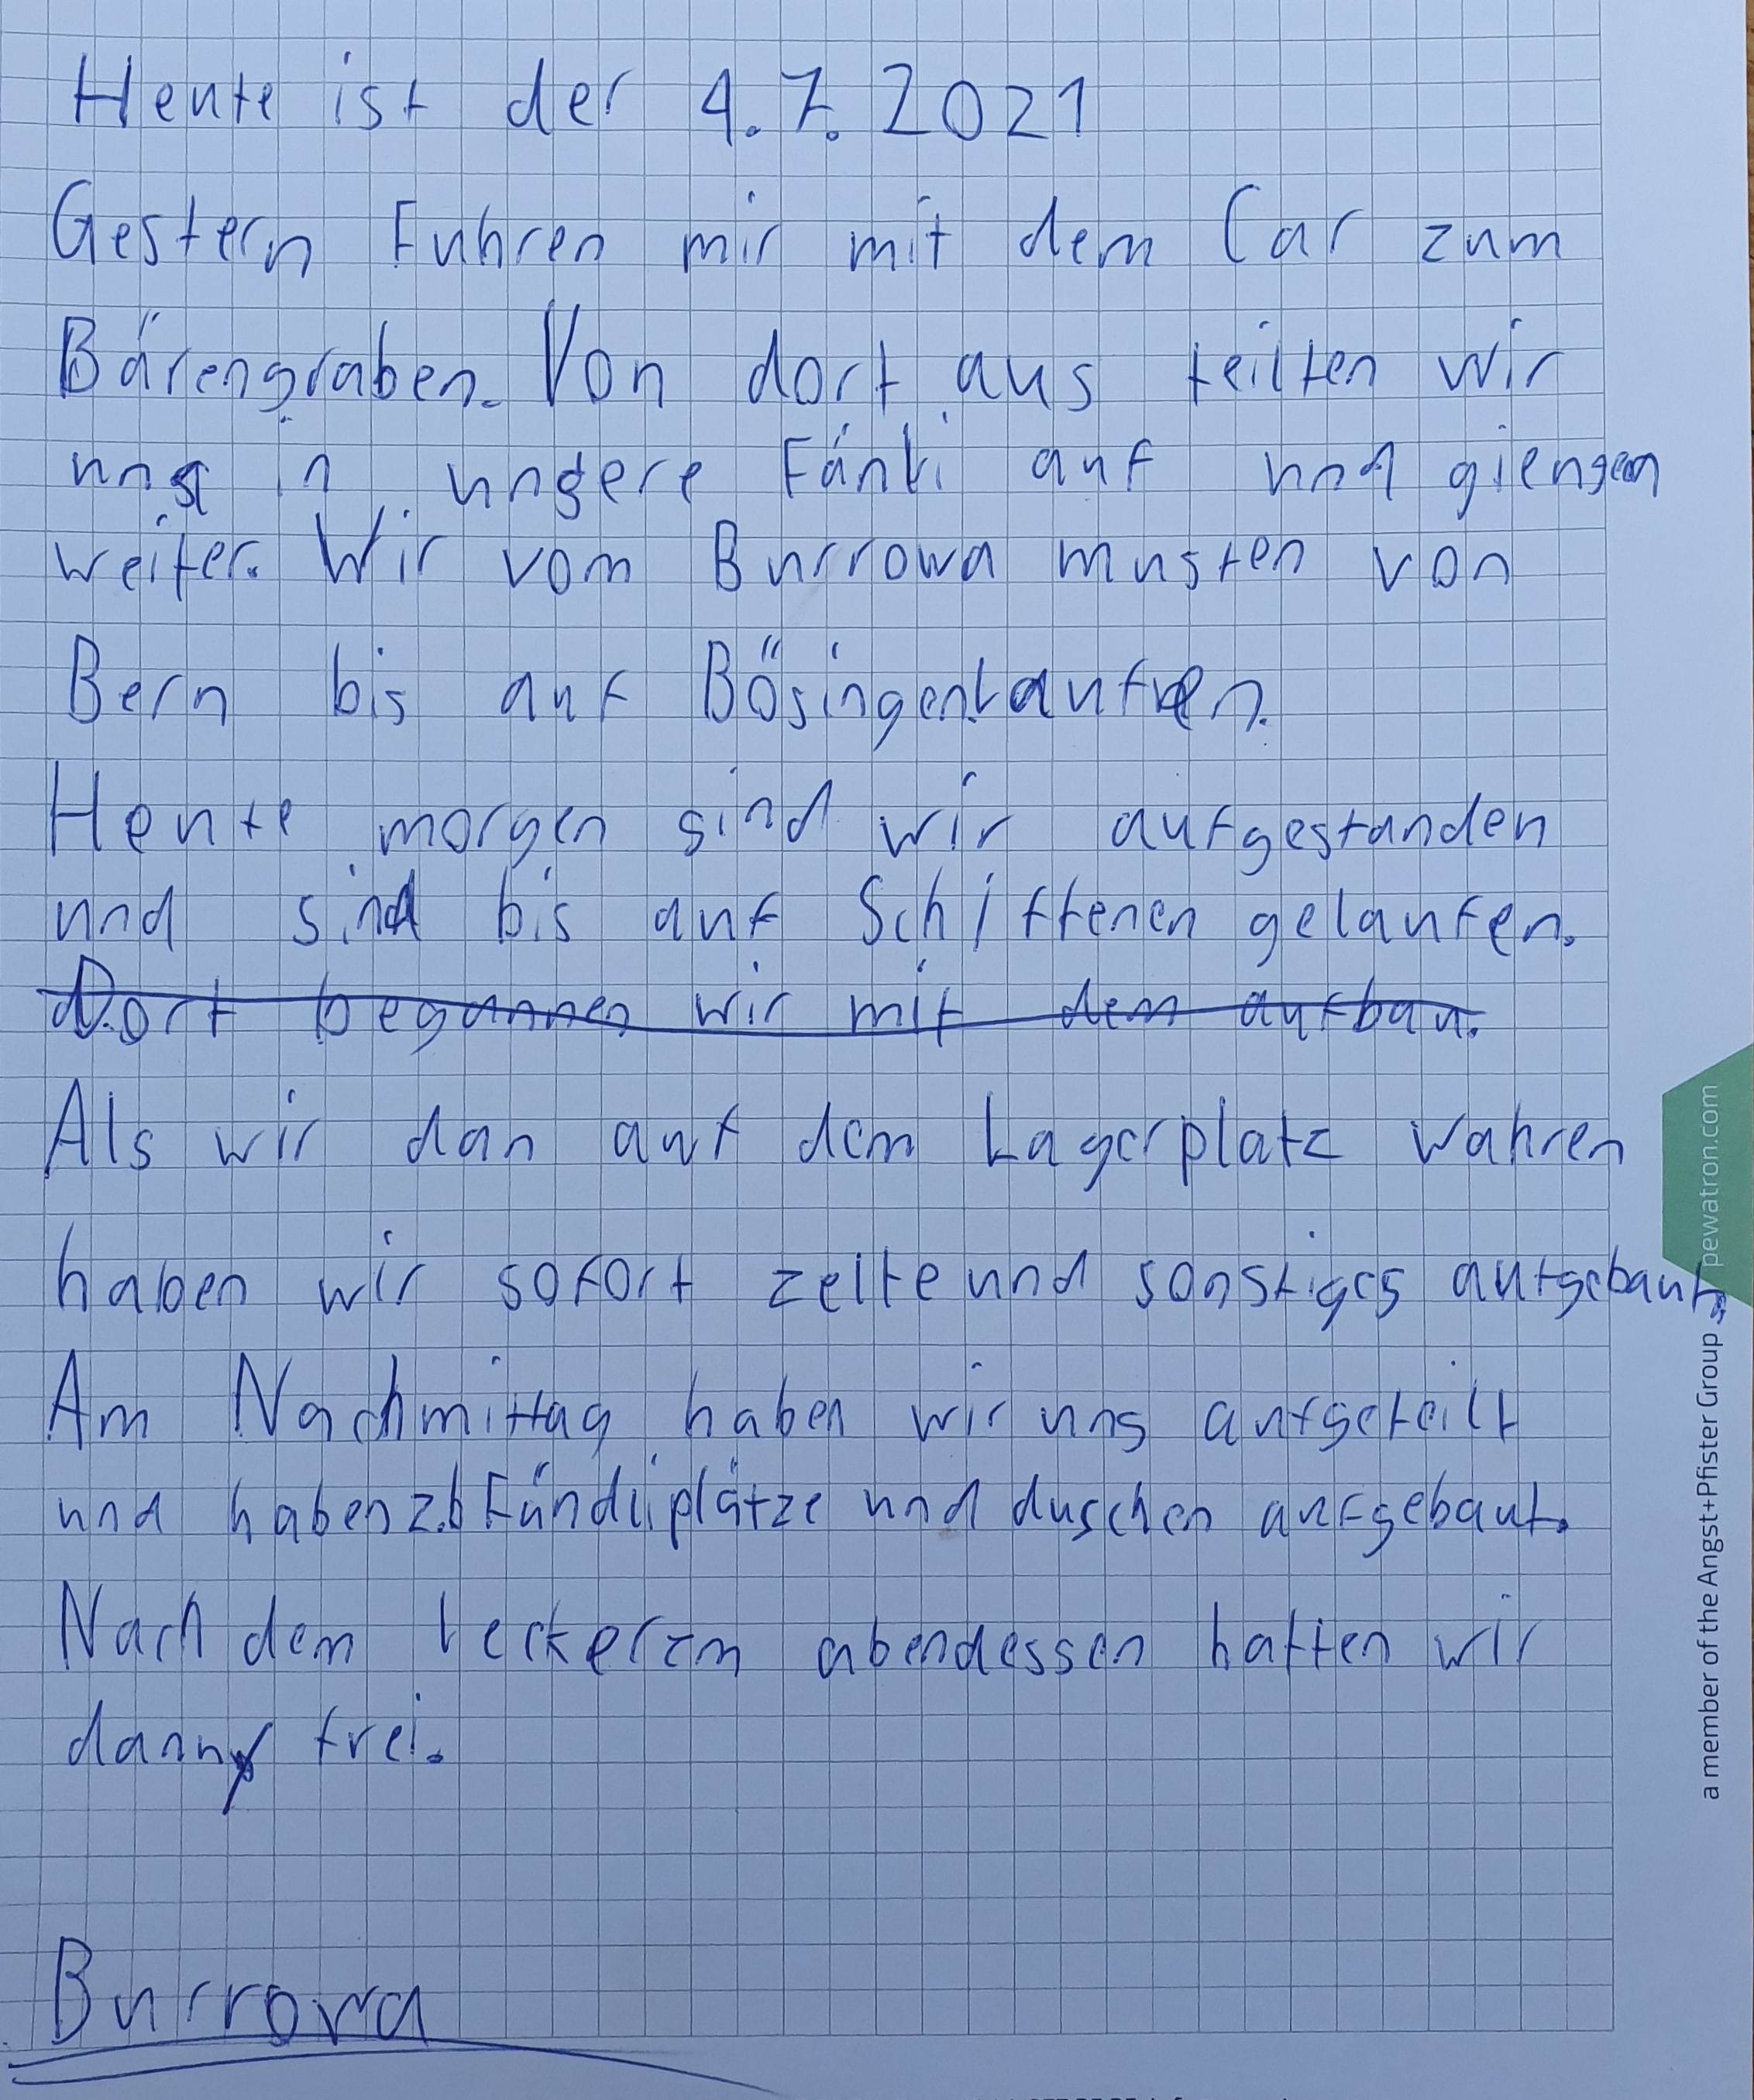 Heute ist der 4.7.2021
Gestern Fuhren mir mit dem Car zum
Bärengraben. Von dort aus teilten wir
uns in unsere Fänli auf und giengen
weiter. Wir vom Burrowa musten von
Bern bis auf Bösingen laufen.
Heute morgen sind wir aufgestanden
und sind bis auf Schiffenen gelaufen.
Dort begannen wir mit dem aufbau.
Als wir dan auf dem Lagerplatz wahren
haben wir sofort zelte und sonstiges aufgebaut.
Am Nachmittag haben wir uns aufgeteilt
und haben z.b Fändliplätze und duschen aufgebaut.
Nach dem leckerem abendessen hatten wir
dann frei.
Burrowa
pewatron.com
a member of the Angst+Pfister Group